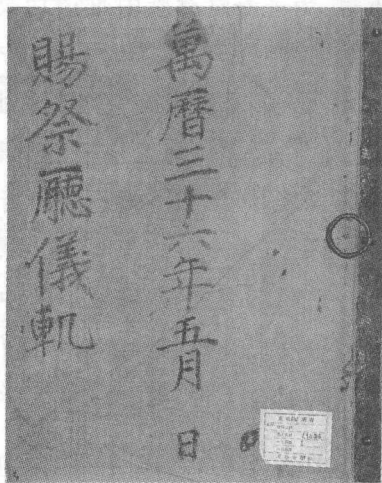 萬曆三十六年五月 日
賜祭廳儀軌